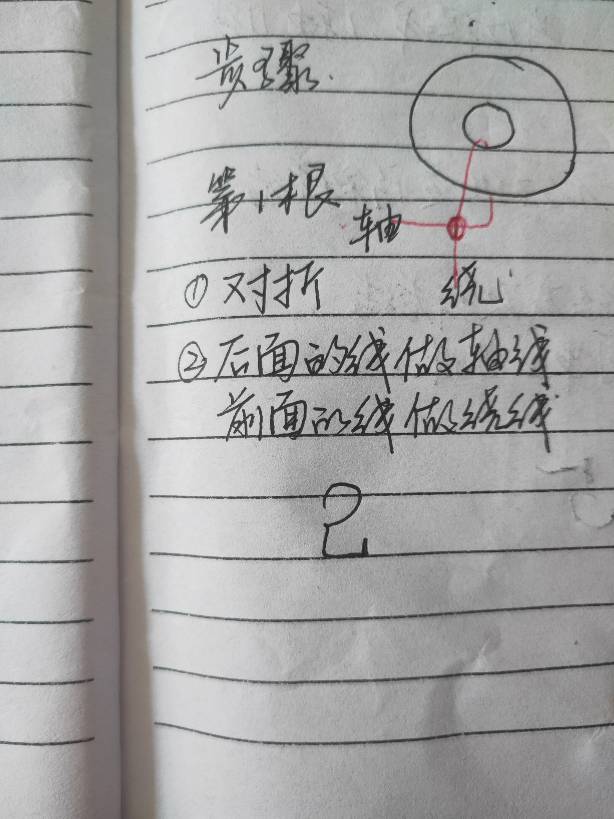 步骤
第1根
轴
绕
①对折
②后面的线做轴线
前面的线做绕线
2